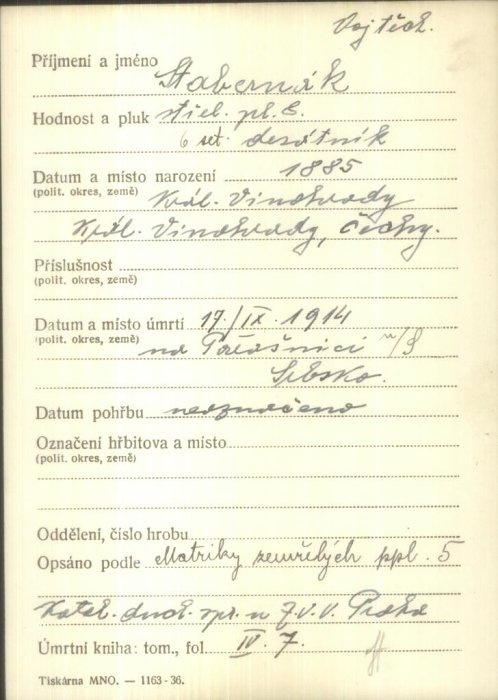 Vojtěch.
Příjmení a jméno Stabernák
Hodnost a pluk střel. pl. 6.
6 set. desátník
Datum a místo narození 1885
(polit. okres, země) Král. Vinohrady
Král. Vinohrady, Čechy.
Příslušnost
(polit. okres, země)
Datum a místo úmrtí 17./IX. 1914
(polit. okres, země) na
Srbsko.
Datum pohřbu neoznačeno
Označení hřbitova a místo
(polit. okres, země)
Oddělení, číslo hrobu
Opsáno podle Matriky zemřelých ppl. 5
Katol. duch. spr. u Z.V.V. Praha
Úmrtní kniha: tom., fol. IV. 7.
Tiskárna MNO. — 1163-36.